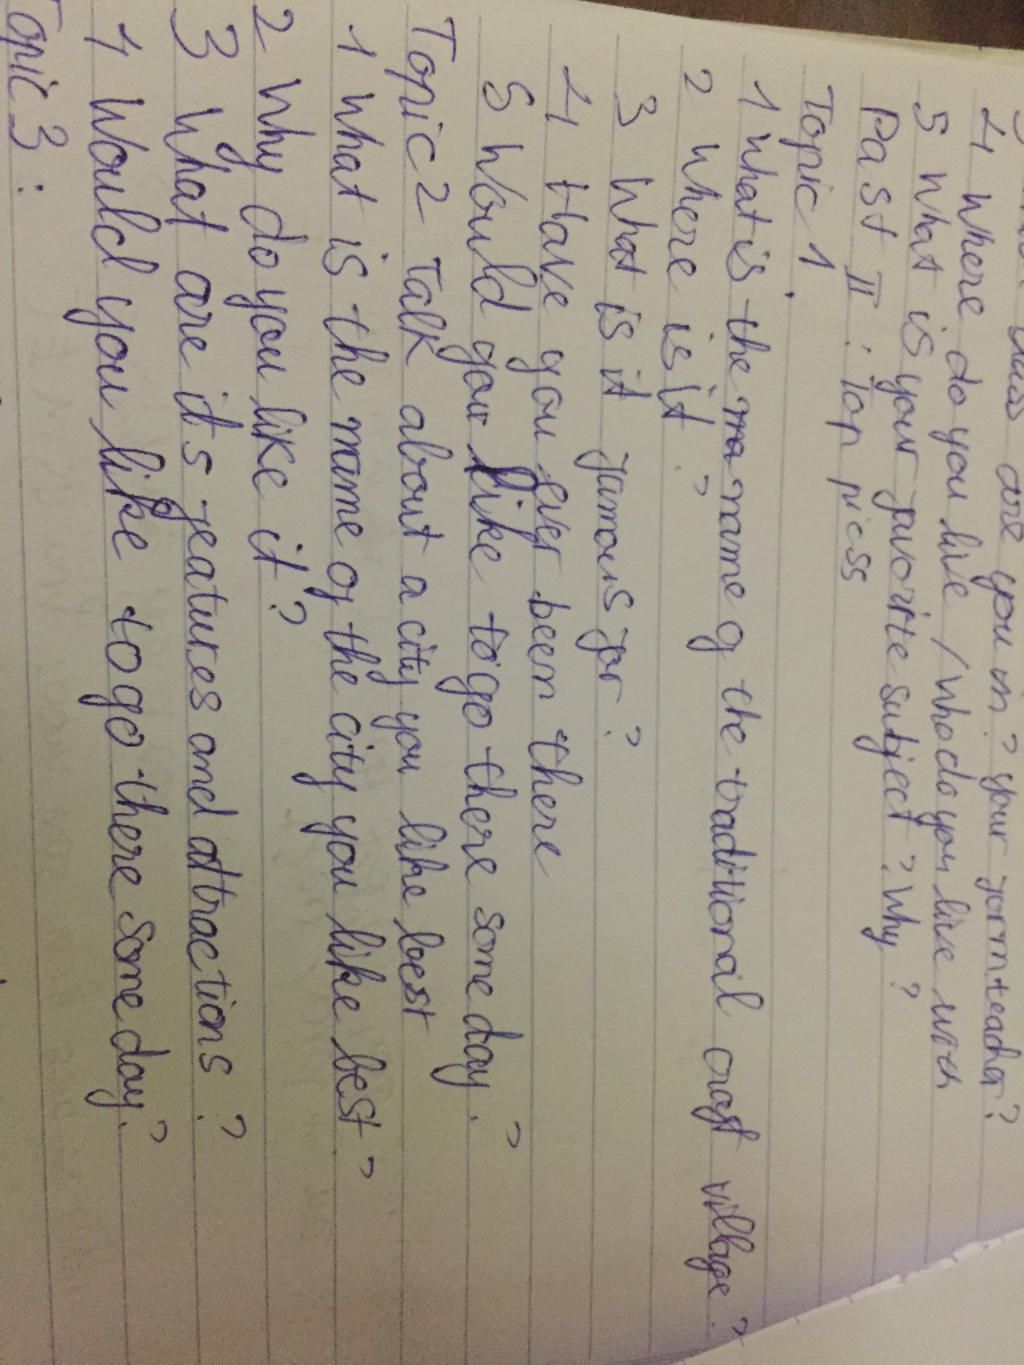 are you in? your form teacher?
4 where do you live / who do you live with
5 What is your favorite subject? Why?
Past II: Top picss
Topic 1
1 what is the ma name of the traditional craft village?
2 where is it?
3 What is it famous for?
4 Have you ever been there
5 Would you like to go there some day?
Topic 2 Talk about a city you like best
1 what is the name of the city you like best?
2 Why do you like it?
3 what are it's features and attractions?
4 Would you like to go there some day?
Topic 3: